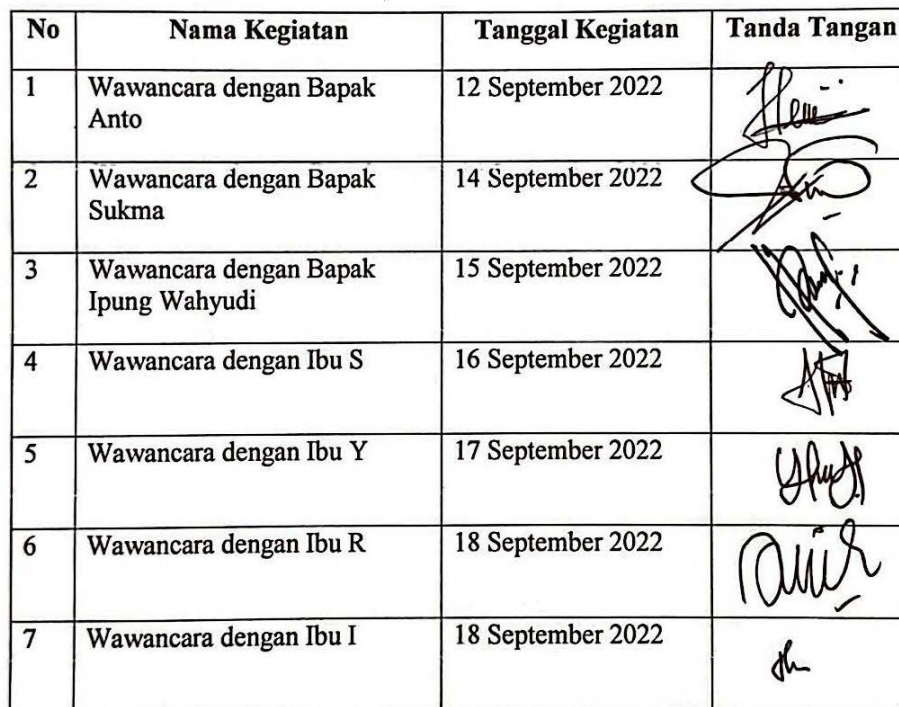 No Nama Kegiatan Tanggal Kegiatan Tanda Tangan
1 Wawancara dengan Bapak 12 September 2022
Anto
2 Wawancara dengan Bapak 14 September 2022
Sukma
3 Wawancara dengan Bapak 15 September 2022
Ipung Wahyudi
4 Wawancara dengan Ibu S 16 September 2022
5 Wawancara dengan Ibu Y 17 September 2022
6 Wawancara dengan Ibu R 18 September 2022
7 Wawancara dengan Ibu I 18 September 2022